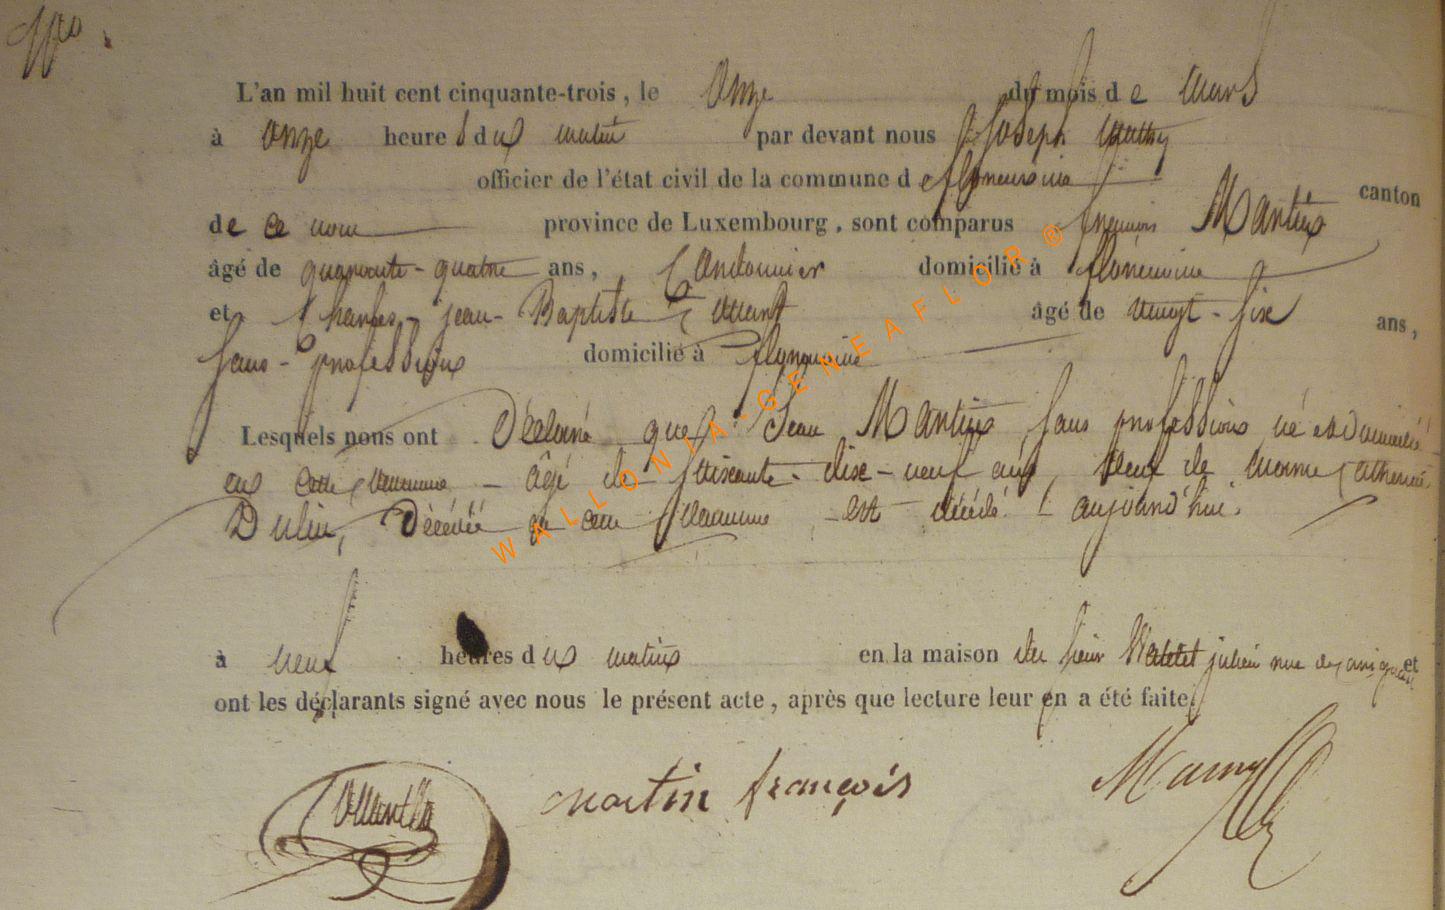 L'an mil huit cent cinquante-trois, le onze du mois de mars
à onze heures du matin par devant nous Joseph
officier de l'état civil de la commune de florenville canton
de ce nom province de Luxembourg, sont comparus françois Martin
âgé de quarante-quatre ans, Cordonnier domicilié à
et Charles-jean-Baptiste âgé de vingt-six ans,
sans-profession domicilié à
Lesquels nous ont Déclaré que Jean Martin sans profession né et Domicilié
en cette commune - âgé de soixante-dix-neuf ans, veuf de marie Catherine
Dulieu, Décédée en cette commune est décédé aujourd'hui
à neuf heures du matin en la maison du sieur julien rue et
ont les déclarants signé avec nous le présent acte, après que lecture leur en a été faite.
martin françois
WALLONIA-GENEAFLOR ®